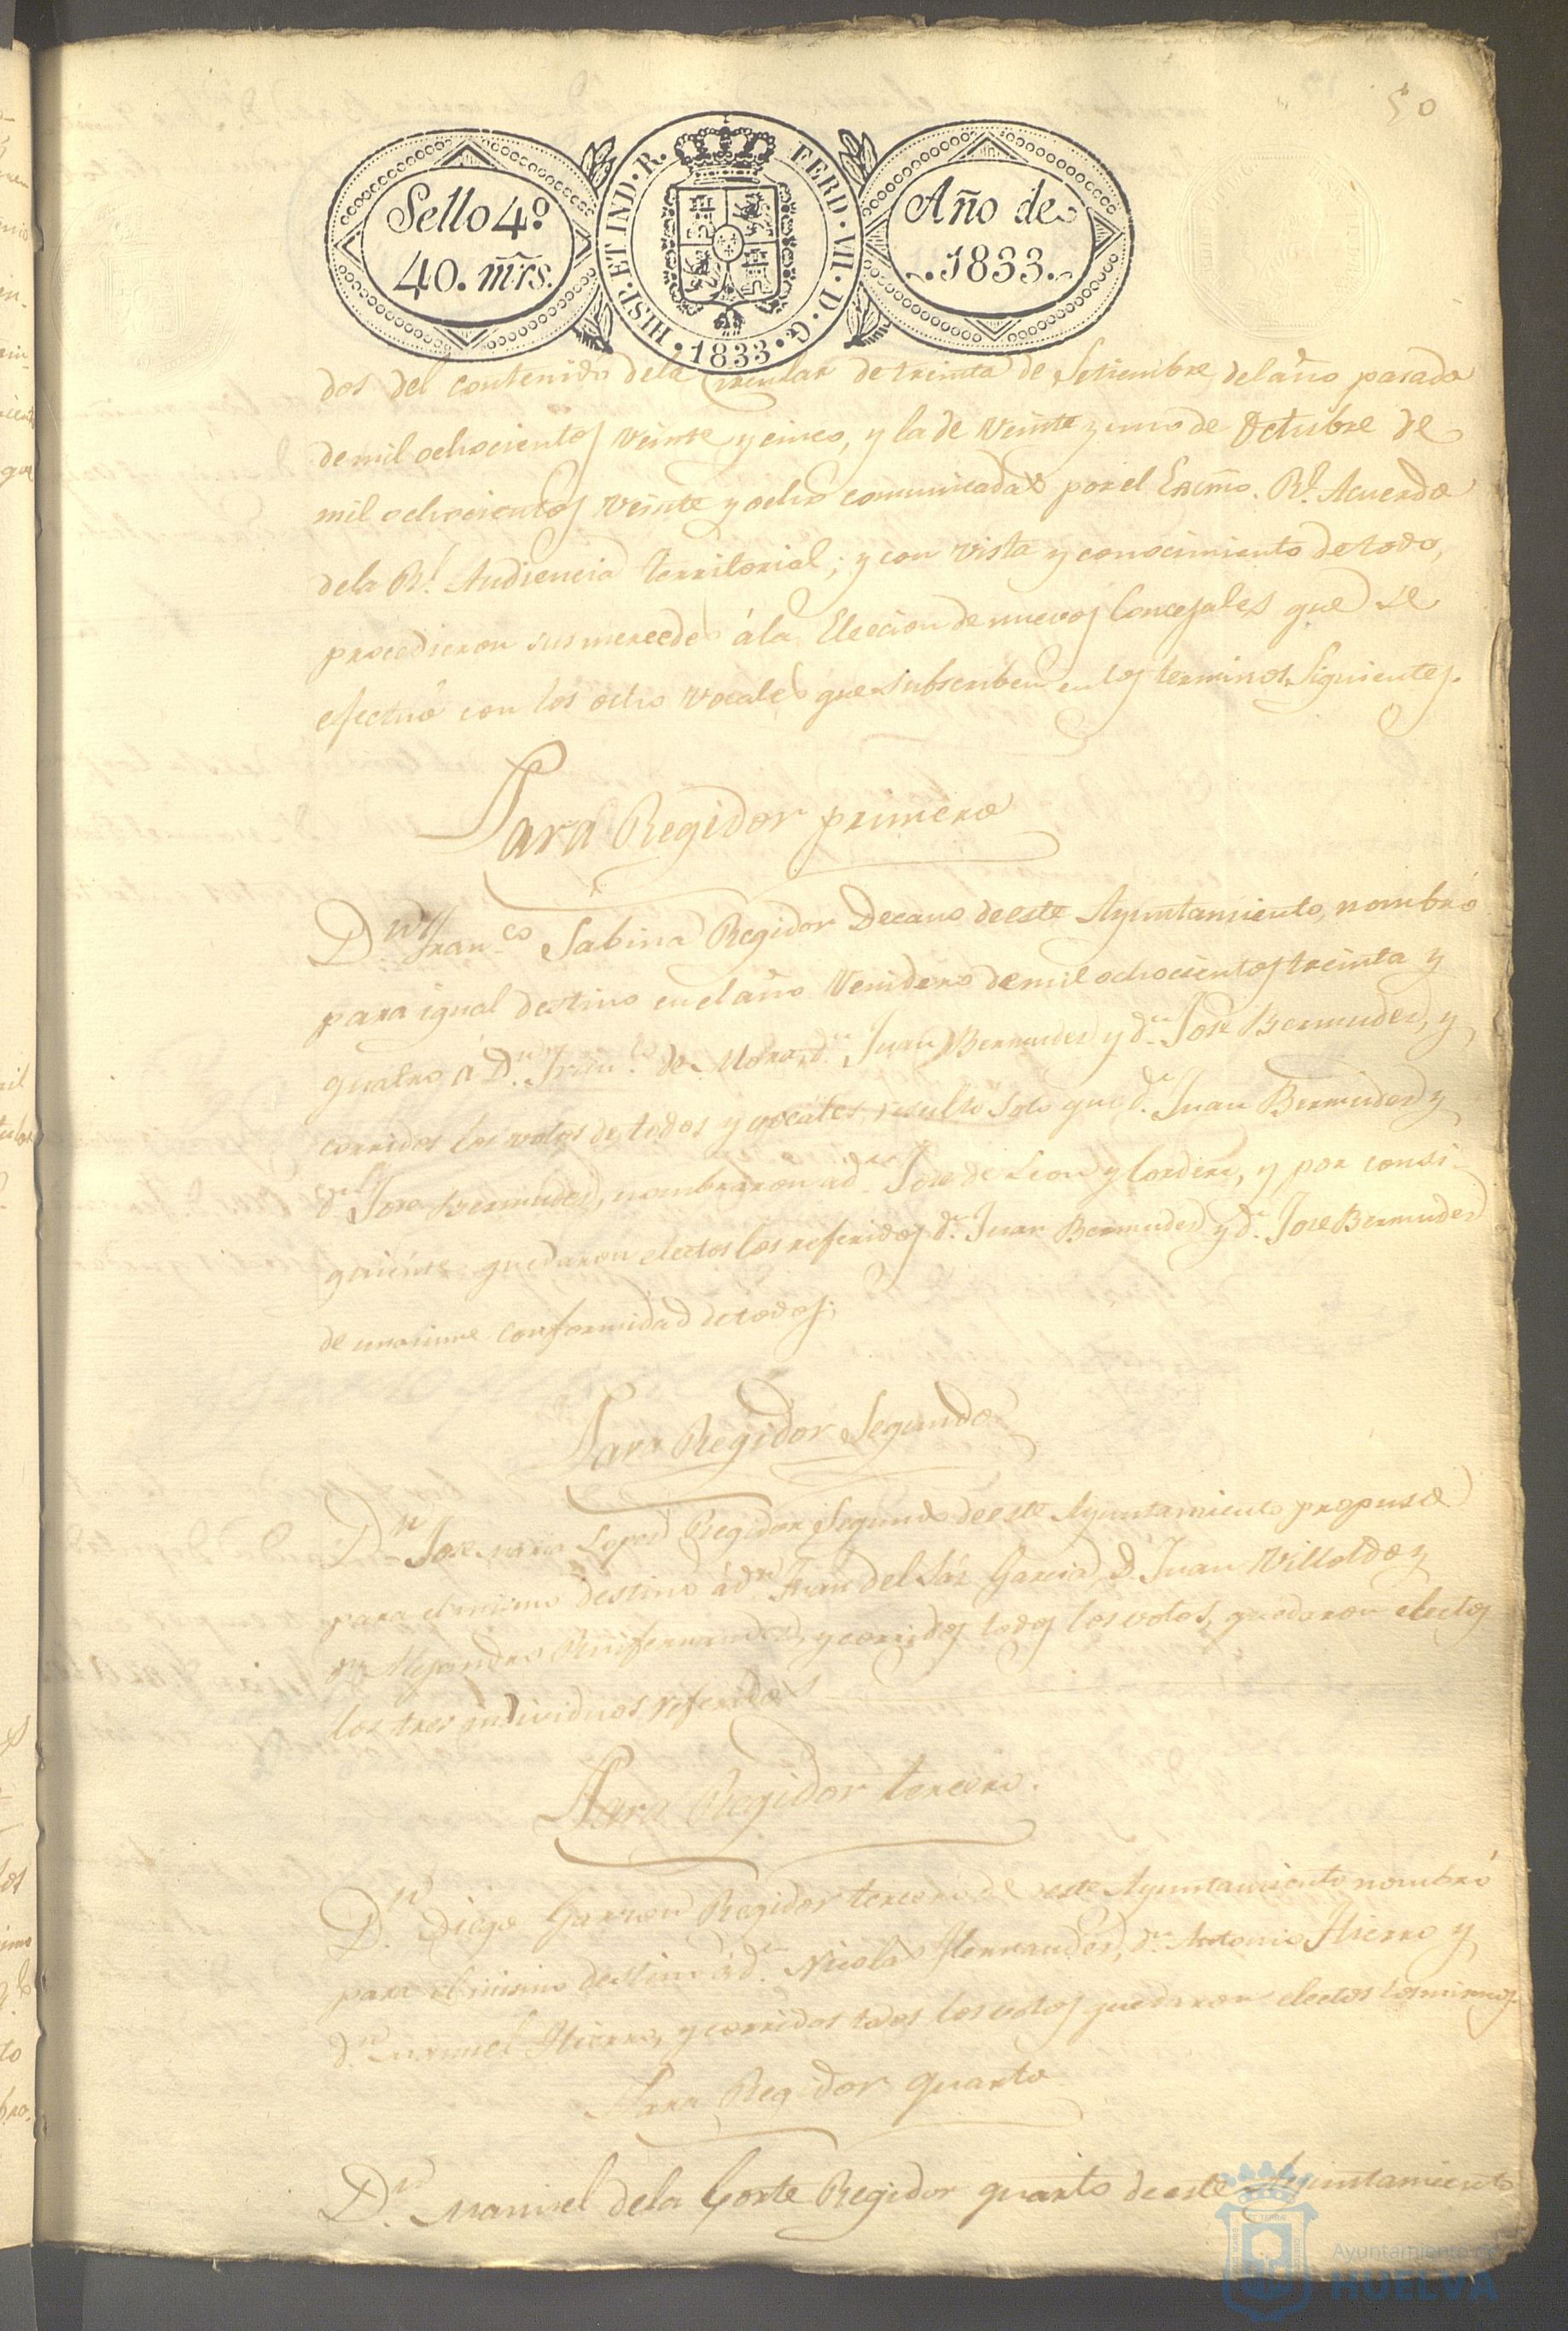 50
Sello 4.º
40. mrs.
HISP. ET IND. R. FERD. VII. D. G. 1833.
Año de
1833.
dos del contenido dela Circular de treinta de Setiembre del año pasado
de mil ochocientos veinte y cinco, y la de veinte y uno de Octubre de
mil ochocientos veinte y ocho comunicadas por el Excmo. Rl. Acuerdo
dela Rl. Audiencia territorial; y con vista y conocimiento de todo,
procedieron sus mercedes á la Eleccion de nuevos Concejales que se
efectuó con los ocho vocales que subscriben en los terminos siguientes.
Para Regidor primero
Dn. Franco. Sabina Regidor Decano de este Ayuntamiento, nombró
para igual destino en el año venidero de mil ochocientos treinta y
quatro á Dn. Franco. de Mora, dn. Juan Bermudez y dn. Jose Bermudez, y
corridos los votos de todos y vocales, resultó solo que dn. Juan Bermudez y
dn. Jose Bermudez, nombraron a dn. Jose de Leon y Cordero, y por consi-
guiente quedaron electos los referidos dn. Juan Bermudez y dn. Jose Bermudez
de unanime conformidad de todos.
Para Regidor Segundo
Dn. Jose maria Lopez Regidor Segundo de este Ayuntamiento propuso
para el mismo destino á dn. Juan del Saz Garcia, D. Juan Villoldo y
dn. Alejandro, y corridos todos los votos, quedaron electos
los tres individuos referidos
Para Regidor tercero.
Dn. Diego Garzon Regidor tercero de este Ayuntamiento nombró
para el mismo destino á dn. Nicolas Hernandez, dn. Antonio Hierro y
dn. manuel Hierro, y corridos todos los votos quedaron electos los mismos.
Para Regidor quarto
Dn. Manuel dela Corte Regidor quarto de este Ayuntamiento
Ayuntamiento de
HUELVA